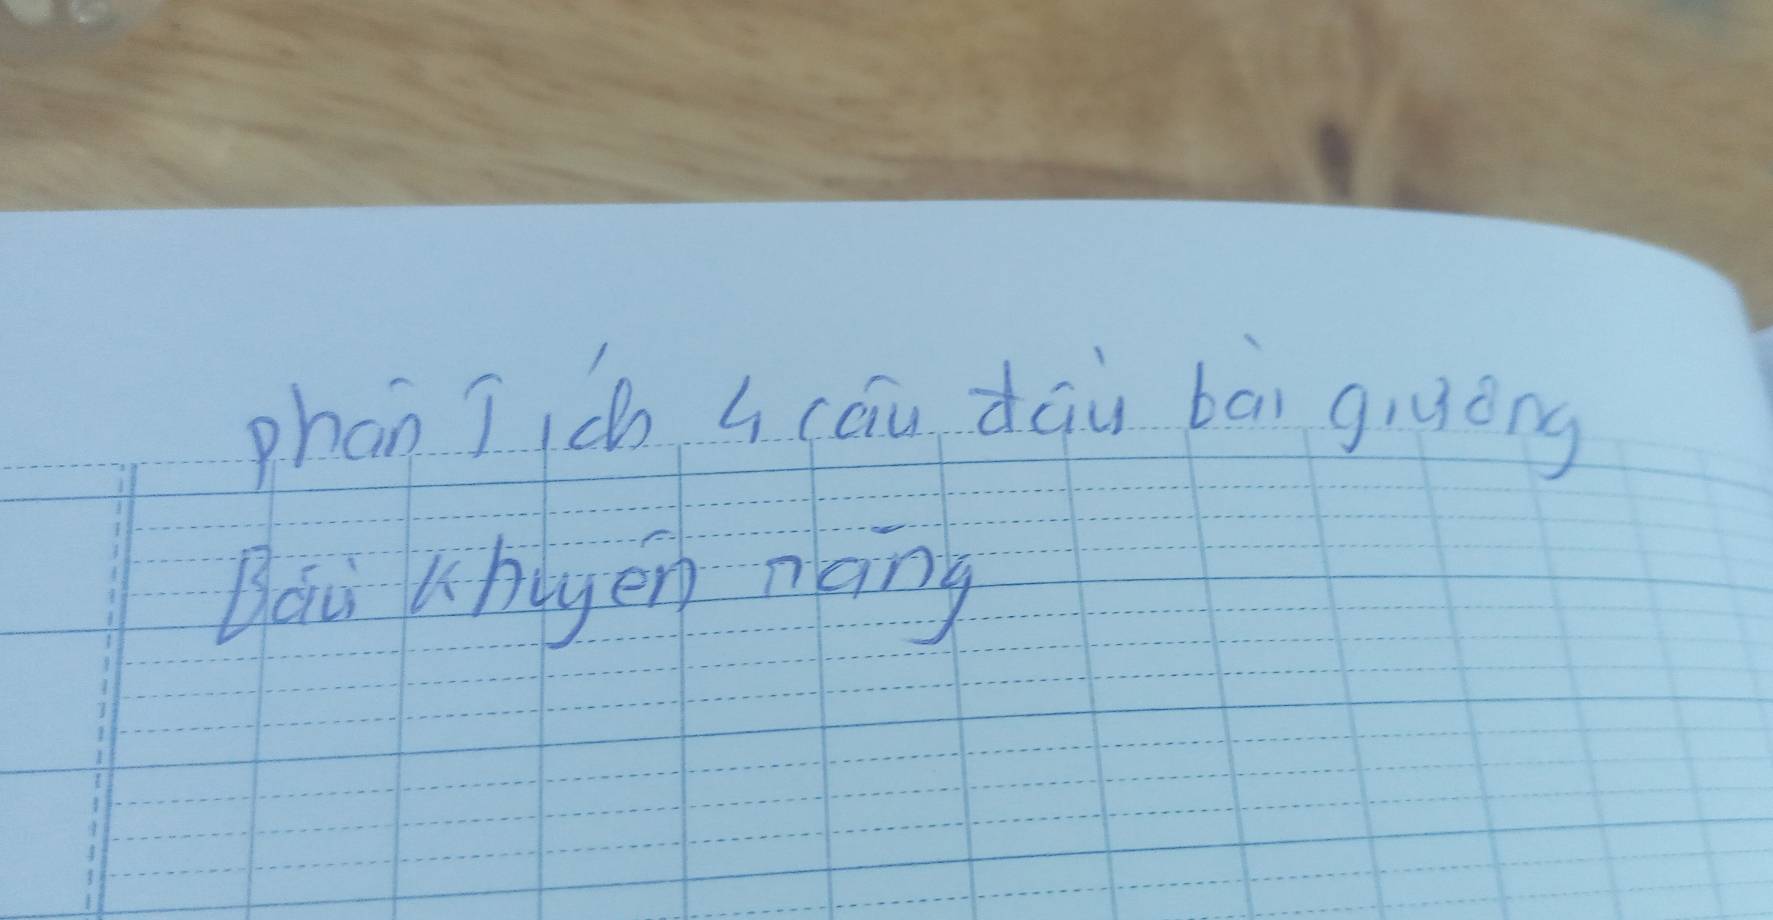 phân Tích 4 câu đầu bài giương
Báu khuyên năng